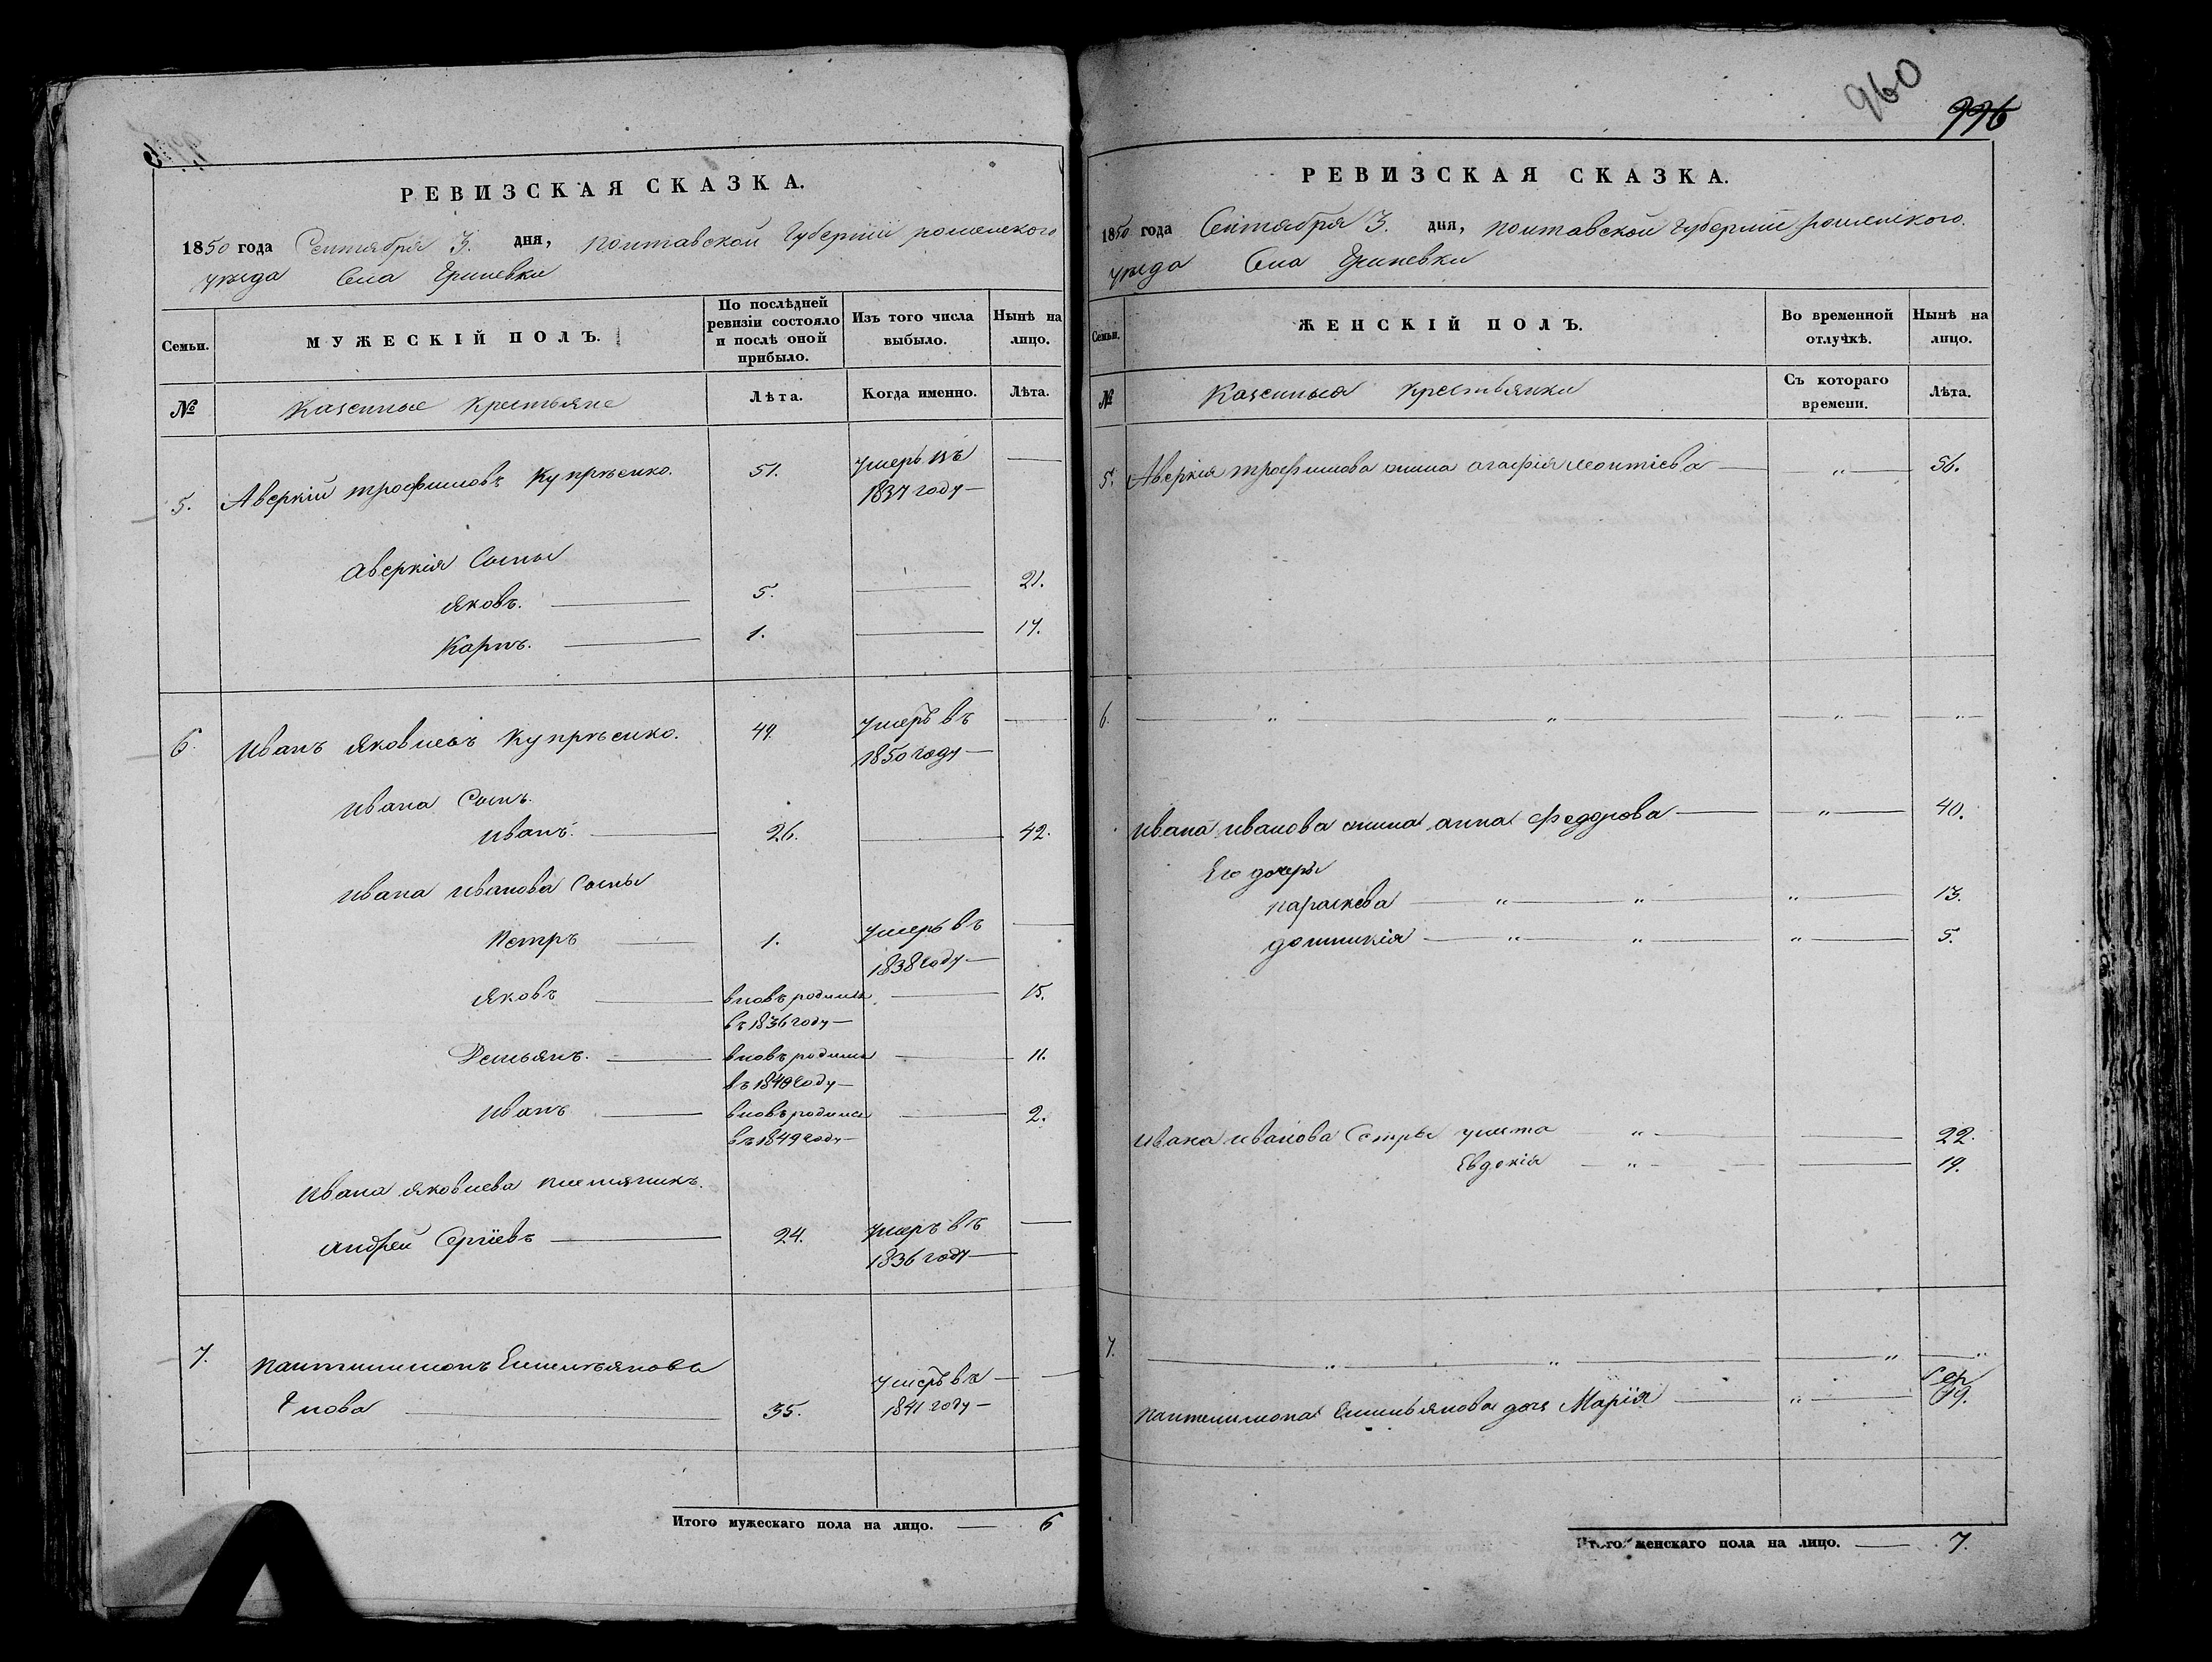 РЕВИЗСКАЯ СКАЗКА.
1850 года Сентября 3. дня, Полтавской Губернии роменского
уѣзда Села Гриневки
Семьи. МУЖЕСКІЙ ПОЛЪ. По послѣдней ревизіи состояло и послѣ оной прибыло. Изъ того числа выбыло. Нынѣ на лицо.
№ Казенные Крестьяне Лѣта. Когда именно. Лѣта.
5. Аверкій трофимовъ Купрѣенко. 51. умеръ въ
1837 году —
Аверкія Сыны
Яковъ. — 5. — 21.
Карпъ. — 1. — 17.
6. Иванъ Яковлевъ Купрѣенко. 49. умеръ въ —
1850 году —
Ивана Сынъ.
Иванъ. — 26. — 42.
Ивана Иванова Сыны
Петръ — 1. умеръ въ —
1838 году —
Яковъ — вновь родился — 15.
въ 1836 году —
Демьянъ. — вновь родился — 11.
въ 1840 году —
Иванъ — вновь родился — 2.
въ 1849 году —
Ивана Яковлева племянникъ.
Андрей Сергіевъ — 24. умеръ въ —
1836 году —
7. Пантилимонъ Емельянова
35. умеръ въ —
1841 году —
Итого мужескаго пола на лицо. — 6
960
996
РЕВИЗСКАЯ СКАЗКА.
1850 года Сентября 3. дня, Полтавской Губернии роменского.
уѣзда Села Гриневки
Семьи. ЖЕНСКІЙ ПОЛЪ. Во временной отлучкѣ. Нынѣ на лицо.
№ Казенныя крестьянки Съ котораго времени. Лѣта.
5. Аверкія трофимова жина агафія леонтіева — „ — 56.
6. — „ — „ — „ — „ —
Ивана Иванова жина анна федорова — „ — 40.
Его дочеры
параскева — „ — „ — „ — 13.
домникія — „ — „ — „ — 5.
Ивана Иванова Сестры улита — „ — 22.
Евдокія — „ — 19.
7. — „ — „ — „ — „
Пантелимона Емельянова дочь Марія — „ — 19.
Итого женскаго пола на лицо. — 7.